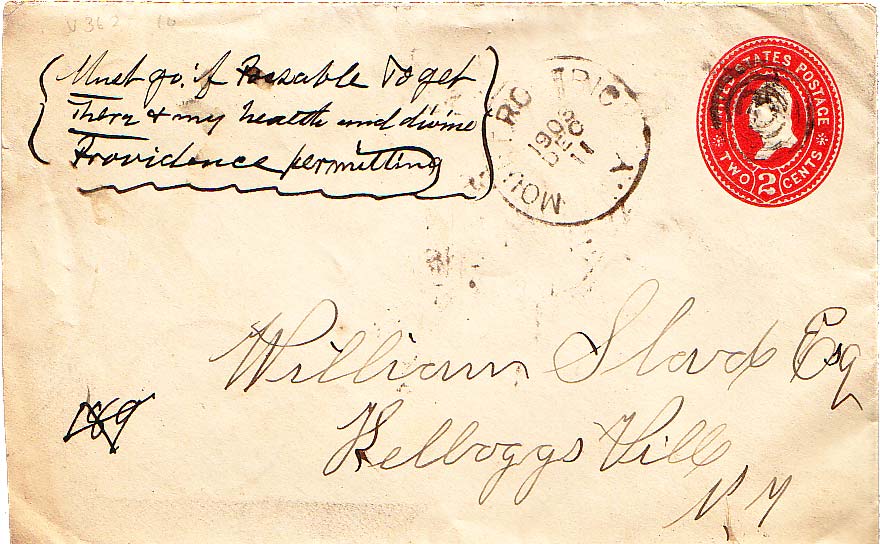 V362 10
Must go if Possable To get
There & my health and divine
Providence permitting
1903
DEC
11
UNITED STATES POSTAGE
TWO 2 CENTS
William Slade Esq
Kelloggs Ville
N Y